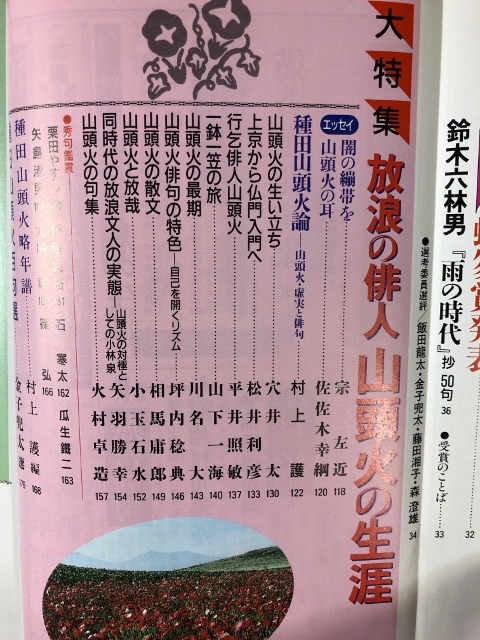 蛇笏賞発表
鈴木六林男『雨の時代』抄50句 36
●受賞のことば 33
32
●選考委員選評/飯田龍太・金子兜太・藤田湘子・森澄雄 34
大特集
放浪の俳人 山頭火の生涯
エッセイ
闇の繃帯を 宗左近 118
山頭火の耳 佐佐木幸綱 120
種田山頭火論―山頭火・虚実と俳句 村上護 122
山頭火の生い立ち 穴井太 130
上京から仏門入門へ 松井利彦 133
行乞俳人山頭火 平井照敏 137
一鉢一笠の旅 山下一海 140
山頭火の最期 川名大 143
山頭火俳句の特色―自己を開くリズム 坪内稔典 146
山頭火の散文 相馬庸郎 149
山頭火と放哉 小玉石水 152
同時代の放浪文人の実態―山頭火の対極としての小林泉 矢羽勝幸 154
山頭火の句集 火村卓造 157
●秀句鑑賞
栗田やすし 石寒太 162 瓜生鐵二 163
矢島渚男 弘 166
種田山頭火略年譜 村上護編 168
金子兜太選